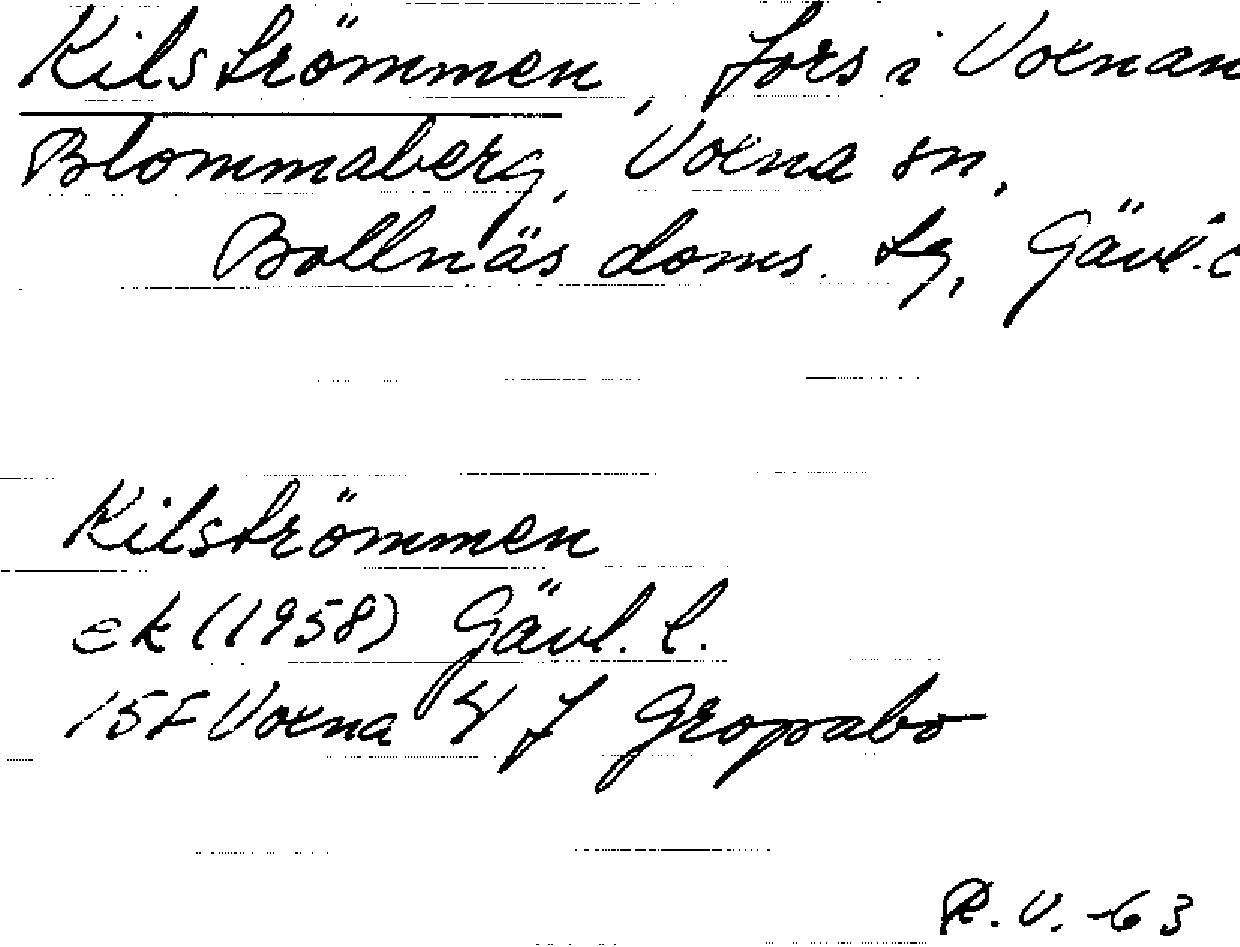 Kilströmmen, fors i Voxnan
Blommaberg, Voxna sn,
Bollnäs doms. tg, Gävl. l
Kilströmmen
ek (1958) Gävl. l.
15F Voxna 4 f Gropabo
R.V. -63